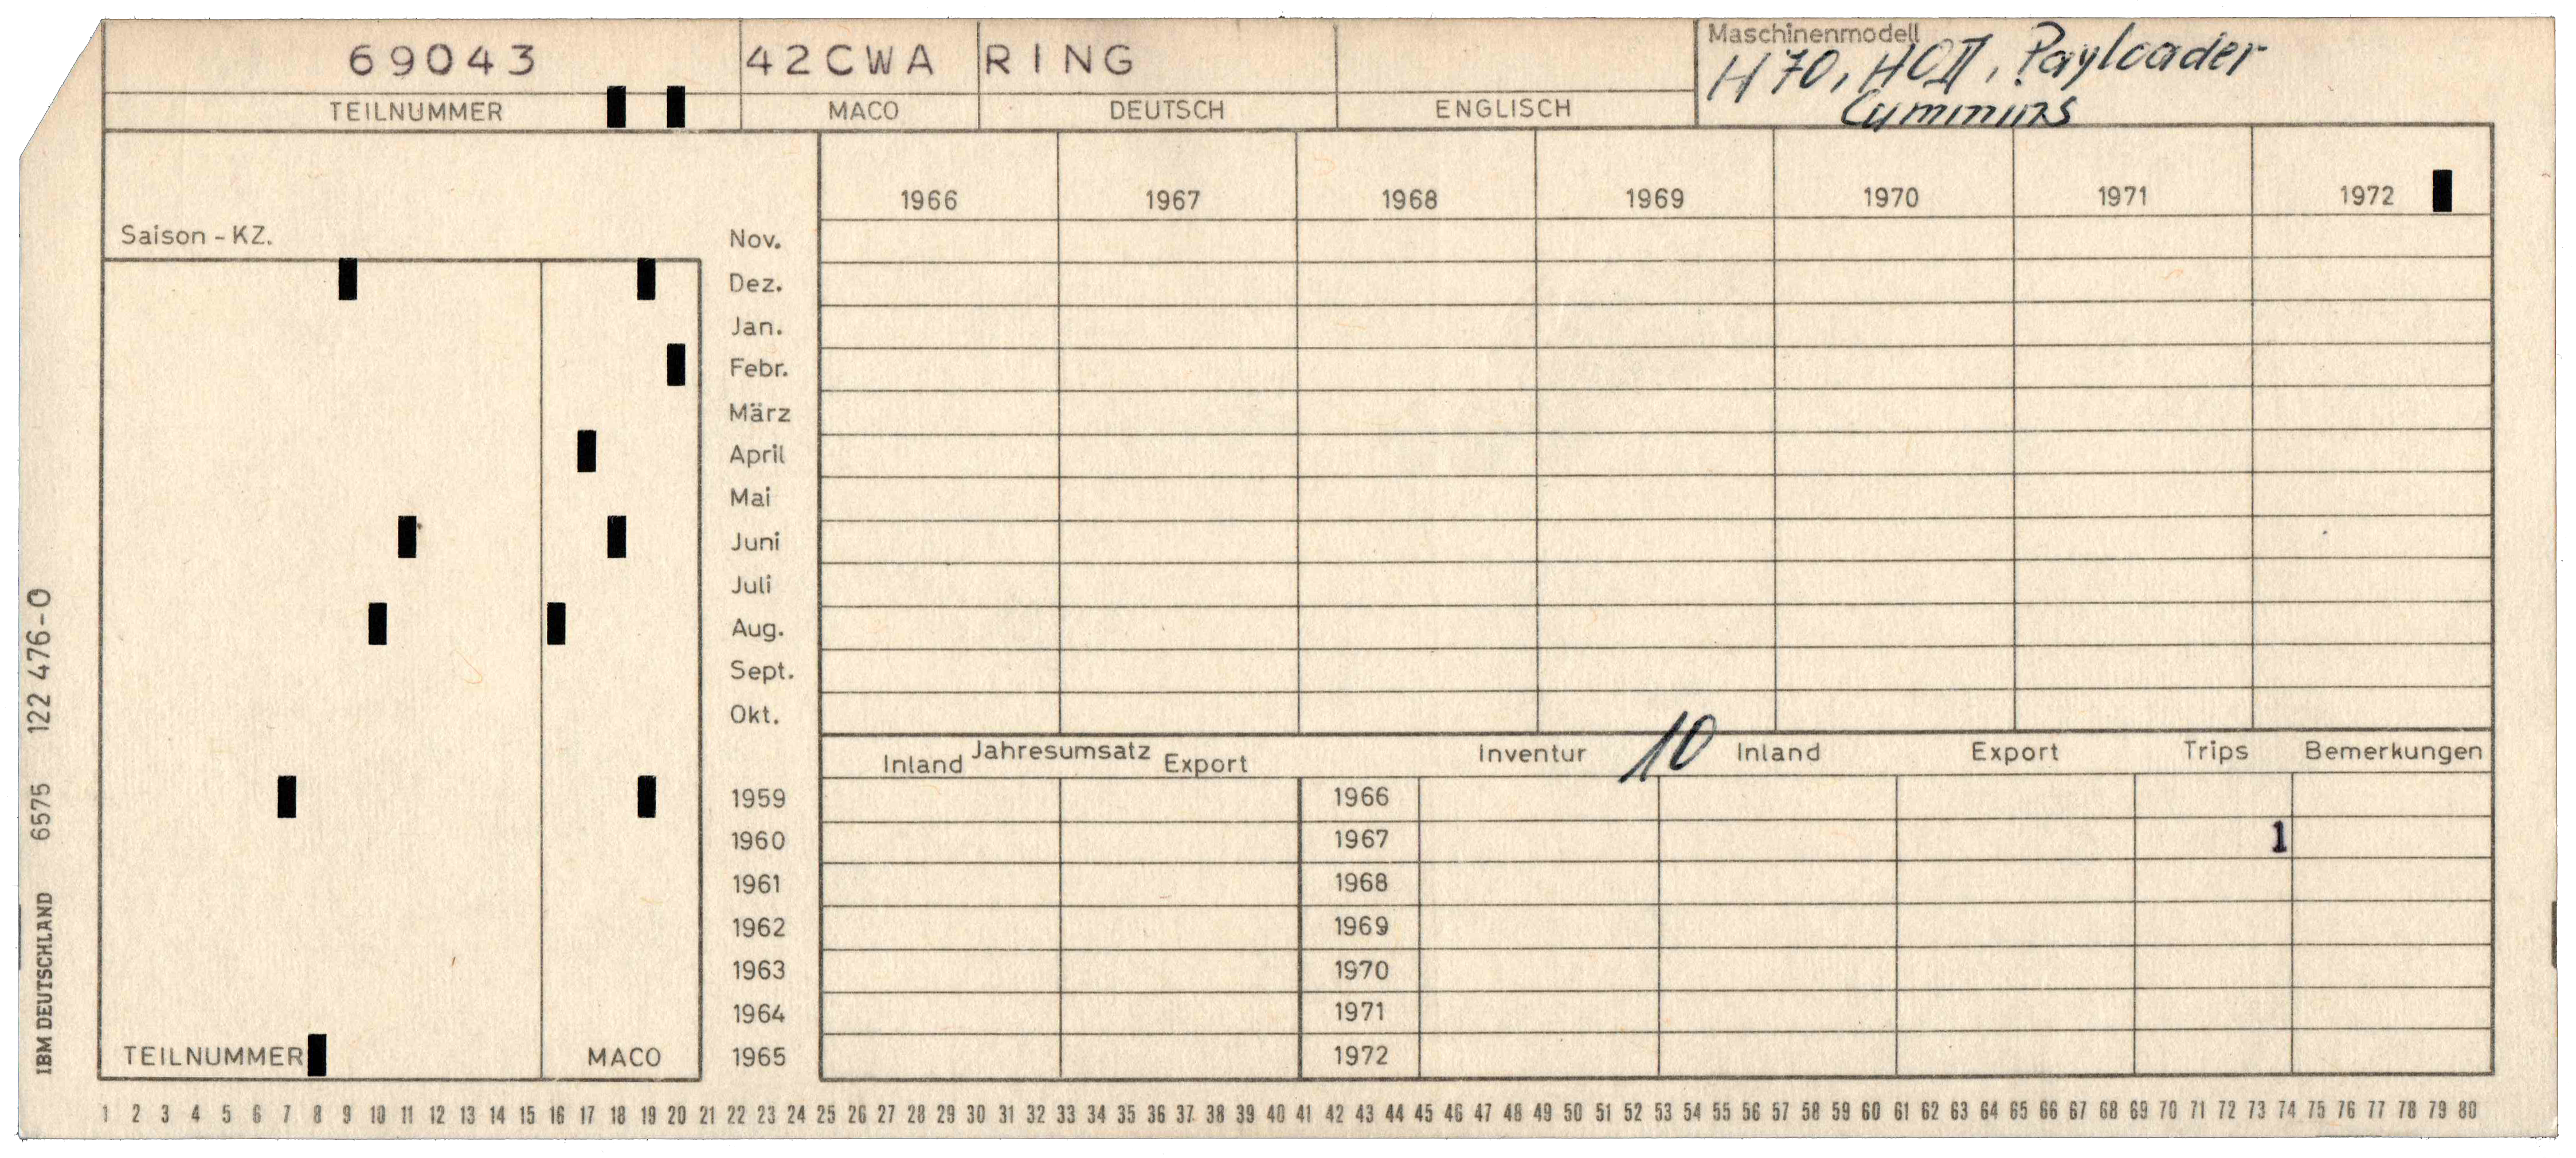 69043 42CWA RING Maschinenmodell
H70, HOII, Payloader
Cummins
TEILNUMMER MACO DEUTSCH ENGLISCH
1966 1967 1968 1969 1970 1971 1972
Saison - KZ.
Nov.
Dez.
Jan.
Febr.
März
April
Mai
Juni
Juli
Aug.
Sept.
Okt.
Inland Jahresumsatz Export Inventur 10 Inland Export Trips Bemerkungen
1959 1966
1960 1967 1
1961 1968
1962 1969
1963 1970
1964 1971
TEILNUMMER MACO 1965 1972
1 2 3 4 5 6 7 8 9 10 11 12 13 14 15 16 17 18 19 20 21 22 23 24 25 26 27 28 29 30 31 32 33 34 35 36 37 38 39 40 41 42 43 44 45 46 47 48 49 50 51 52 53 54 55 56 57 58 59 60 61 62 63 64 65 66 67 68 69 70 71 72 73 74 75 76 77 78 79 80
IBM DEUTSCHLAND 6575 122 476-0